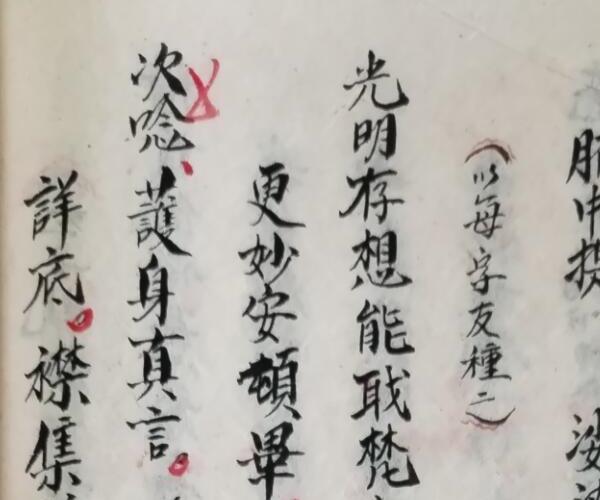 中提
(以每字友種二)
光明存想能戝梵
更妙安頓畢
次唸護身真言。
詳底。襟集